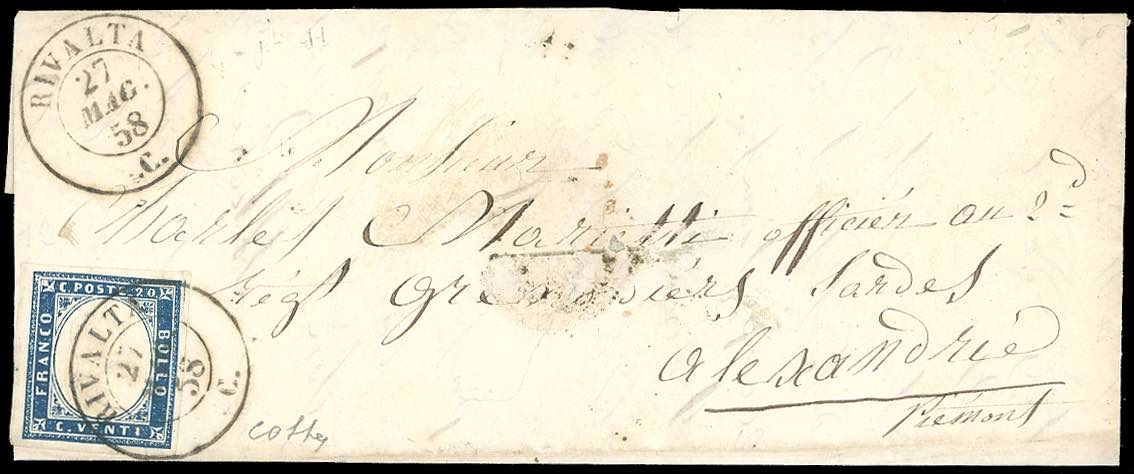 RIVALTA
27
MAG.
58
C.
Monsieur
Charles Marietti officier au 2d
Régt Grenadiérs Sardes
Alexandrie
Piémont
C. POSTE 20
FRANCO
BOLLO
C. VENTI
RIVALTA
27
58
C.